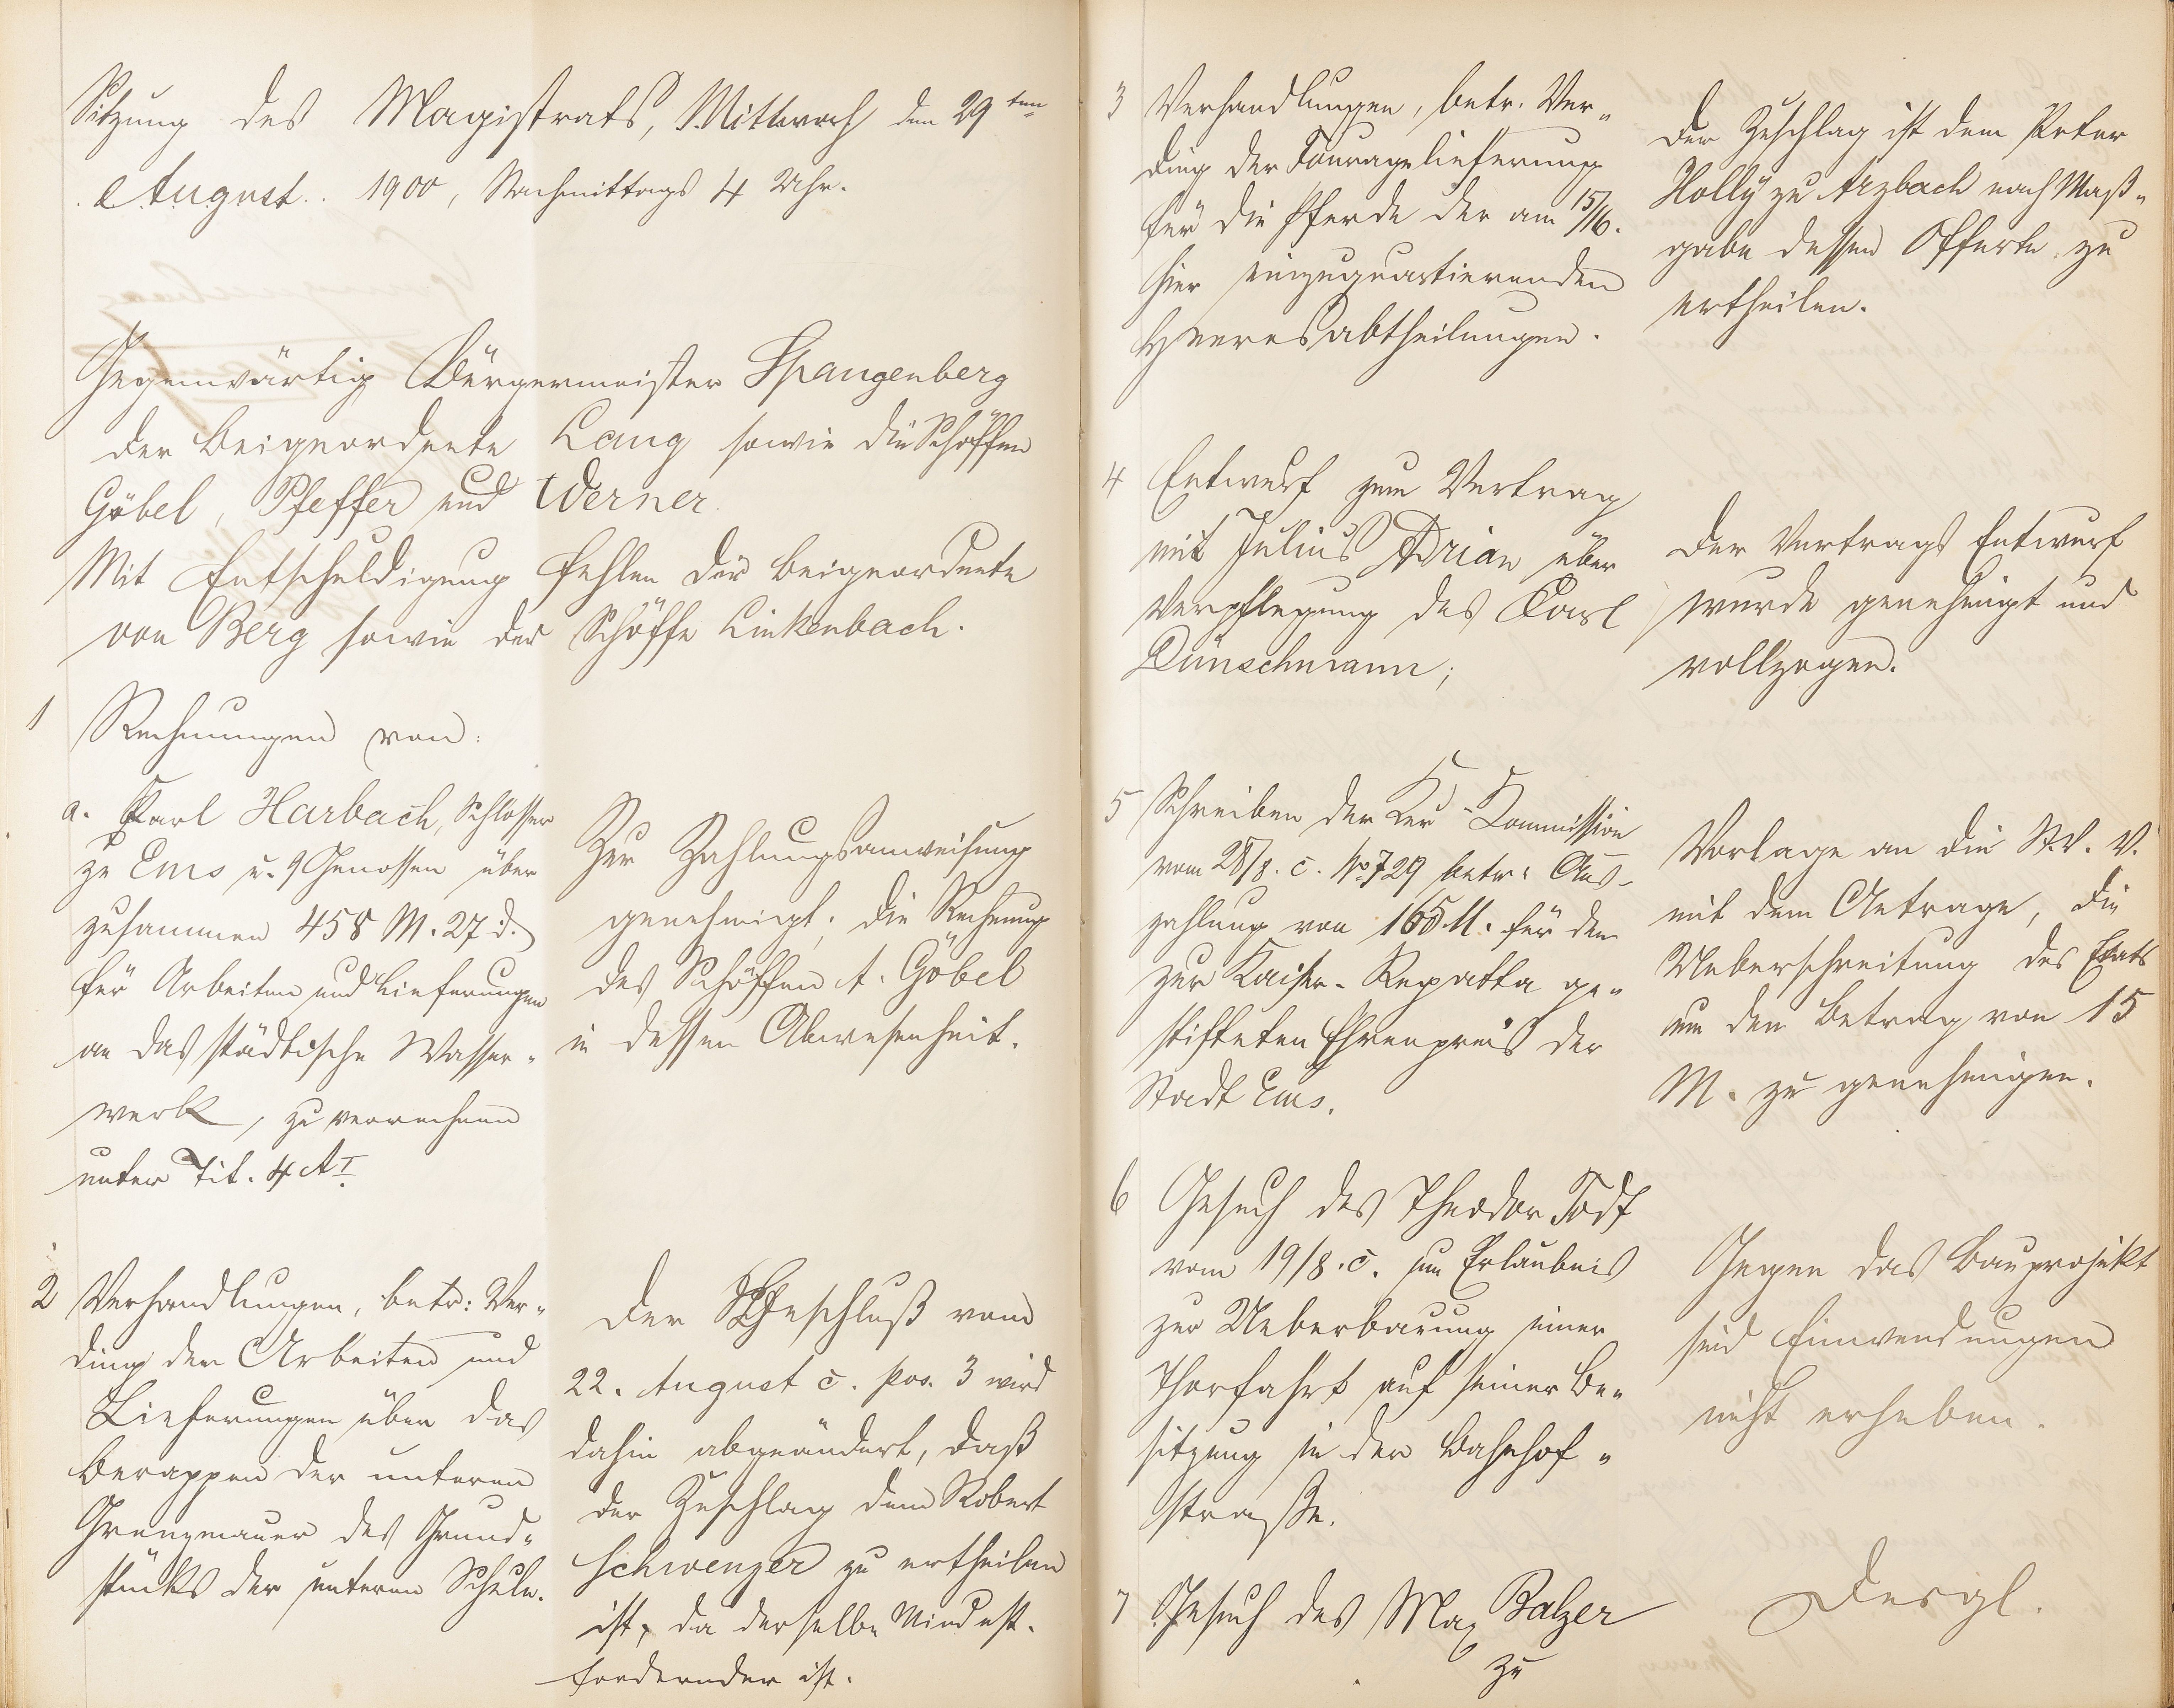 Sitzung des Magistrats, Mittwoch den 29ten
August 1900, Nachmittags 4 Uhr.
Gegenwärtig Bürgermeister Spangenberg
der Beigeordnete Lang sowie die Schöffen
Göbel, Pfeffer und Werner.
Mit Entschuldigung fehlen der Beigeordnete
von Berg sowie der Schöffe Linkenbach.
1 Rechnungen von:
a. Karl Harbach, Schlosser
zu Ems u. 9 Genossen über
zusammen 458 M. 27 d.
für Arbeiten und Lieferungen
an das städtische Wasser-
werk, zu verrechnen
unter Tit. 4 A I.
Zur Zahlungsanweisung
genehmigt. Die Rechnung
des Schöffen A. Göbel
in dessen Abwesenheit.
2 Verhandlungen, betr: Ver-
ding der Arbeiten und
Lieferungen über das
Berappen der unteren
Grenzmauer des Grund-
stücks der unteren Schule.
Der Beschluß vom
22. August c. pos. 3 wird
dahin abgeändert, daß
der Zuschlag dem Robert
Schwenzer zu ertheilen
ist, da derselbe Mindest-
fordernder ist.
3 Verhandlungen, betr. Ver-
ding der Fouragelieferung
für die Pferde der am 15/16.
hier einzuquartierenden
Heeresabtheilungen.
Der Zuschlag ist dem Peter
Holly zu Arzbach nach Maß-
gabe dessen Offerte zu
ertheilen.
4 Entwurf zum Vertrag
mit Julius Adrian über
Verpflegung des Karl
Dünschmann;
Der Vertrags Entwurf
wurde genehmigt und
vollzogen.
5 Schreiben der Kur-Kommission
vom 28/8. c. No 729 betr: Aus-
zahlung von 165 M. für den
zur Kaiser-Regatta ge-
stifteten Ehrenpreis der
Stadt Ems.
Vorlage an die St. V. V.
mit dem Antrage, die
Ueberschreitung des Etats
um den Betrag von 15
M. zu genehmigen.
6 Gesuch des Theodor Todt
vom 19/8. c. um Erlaubnis
zur Ueberbauung einer
Thorfahrt auf seiner Be-
sitzung in der Bahnhof-
straße.
Gegen das Bauprojekt
sind Einwendungen
nicht erheben.
7 Gesuch des Max Balzer
zu
Desgl.